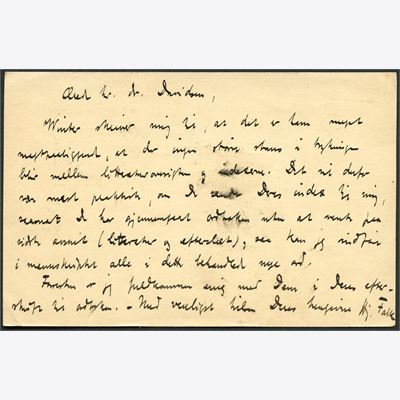 Ærede hr. dr. Davidsen,
Winter skriver mig til, at det er ham meget
magtpaaliggend, at der ingen større stans i trykningen
blir mellem litteraturoversigten og indexerne. Det vil derfor
være mest praktisk, om De sender Deres index til mig,
saasnart De har gjennemgaaet ordboken uten at vente paa
sidste avsnit (litteratur og efterslæt), saa kan jeg indføre
i manuskriptet alle i dette behandlede nye ord.
Forresten er jeg fuldkommen enig med Dem i Deres efter-
skrift til ordboken. – Med venligst hilsen Deres hengivne Hj. Falk